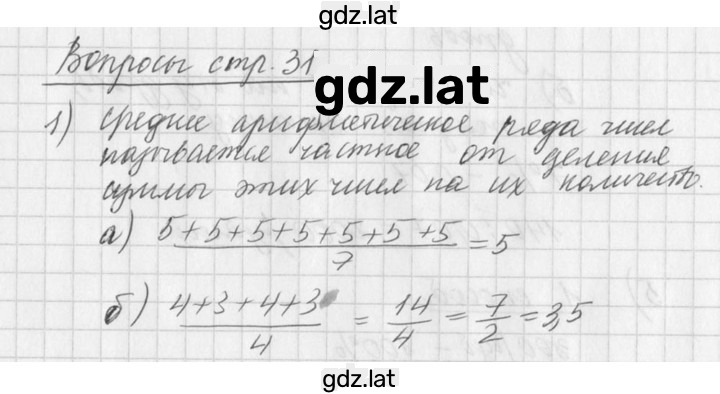 gdz.lat
Вопросы стр. 31
gdz.lat
1) Среднее арифметическое ряда чисел
называется частное от деления
суммы этих чисел на их количество.
а) 5+5+5+5+5+5+5/7 = 5
б) 4+3+4+3/4 = 14/4 = 7/2 = 3,5
gdz.lat